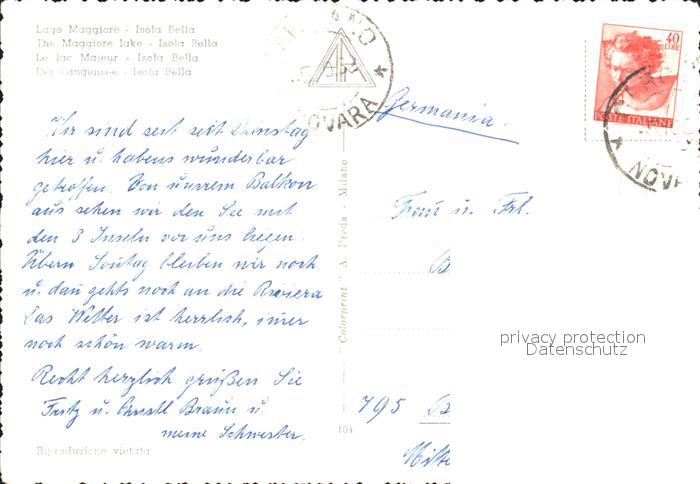 Lago Maggiore - Isola Bella
The Maggiore lake - Isola Bella
Le lac Majeur - Isola Bella
Der Langensee - Isola Bella
NOVARA
40
LIRE
POSTE ITALIANE
NOVA
Germania.
Wir sind seit Dienstag
hier u. habens wunderbar
getroffen. Von unsrem Balkon
aus sehen wir den See mit
den 3 Inseln vor uns liegen.
Übern Sontag bleiben wir noch
u. dan gehts noch an die Riviera
Das Wetter ist herrlich, imer
noch schön warm.
Recht herzlich grüßen Sie
Fritz u. Christl Braun u.
meine Schwester.
Riproduzione vietata
"Colorprint" A. Preda - Milano
104
Frau u. Frl.
B
795 B
Mitte
privacy protection
Datenschutz